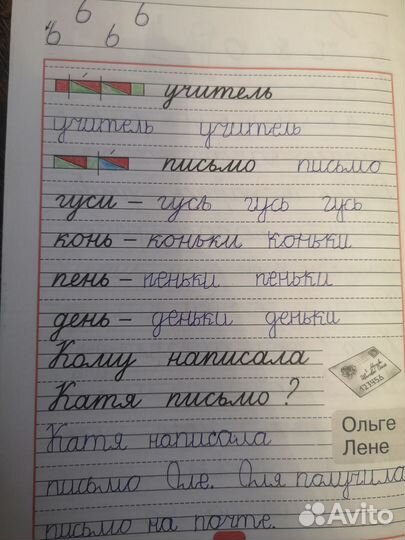 ь ь
ь ь
учитель
учитель учитель
письмо письмо
гуси – гусь гусь гусь
конь – коньки коньки
пень – пеньки пеньки
день – деньки деньки
Кому написала
Катя письмо?
123456
Ольге
Лене
Катя написала
письмо Оле. Оля получила
письмо на почте.
Avito